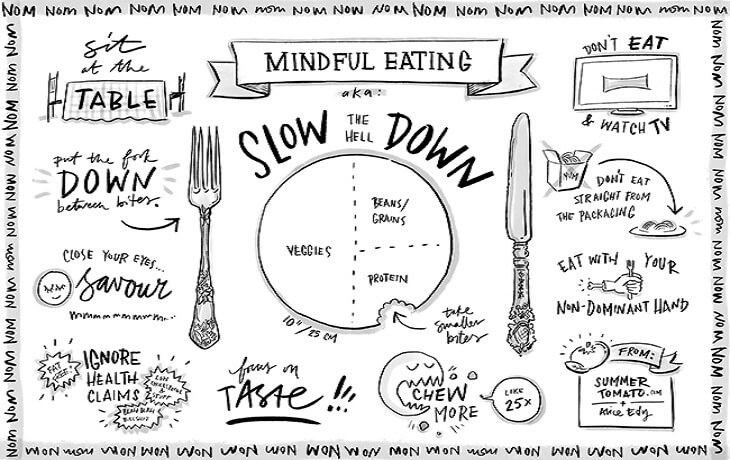 NOM NOM NOM NOM NOM NOM NOM NOM NOM NOM NOM NOM NOM NOM NOM
MINDFUL EATING
aka:
SLOW THE HELL DOWN
sit
at the
TABLE
put the fork
DOWN
between bites.
CLOSE YOUR EYES...
savour
mmmmmmmmm...
IGNORE
HEALTH
CLAIMS
VEGGIES
BEANS/
GRAINS
PROTEIN
10"/25 CM
take
smaller
bites
focus on
TASTE!!!
CHEW
MORE
LIKE
25x
DON'T EAT
& WATCH TV
YUM
DON'T EAT
STRAIGHT FROM
THE PACKAGING
EAT WITH YOUR
NON-DOMINANT HAND
FROM:
SUMMER
TOMATO.COM
+
NOM NOM NOM NOM NOM NOM NOM NOM NOM NOM NOM NOM NOM NOM NOM